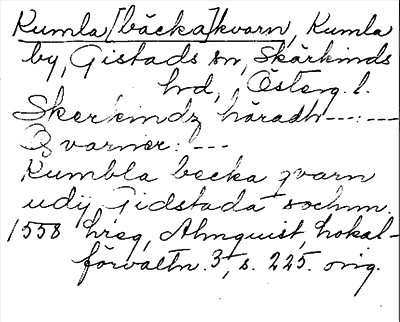 Kumla [bäcka]kvarn, Kumla
by, Gistads sn, Skärkinds
hd, Österg. l.
Skerkindz häradh ---:---
Qvarner: ---
Kumbla becka qvarn
udij Gidstada sochnn.
1558 hreg, Almquist, Lokal-
förvaltn. 3, s. 225. orig.